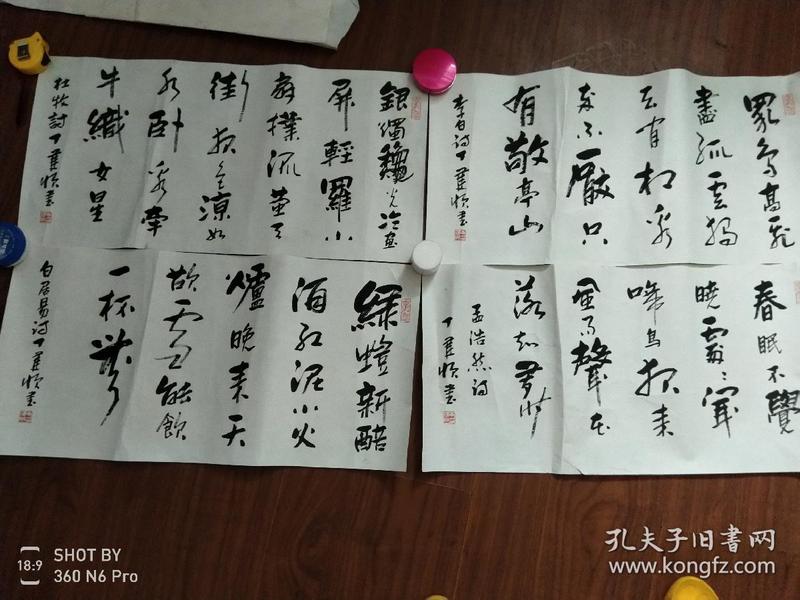 眾鳥高飛
盡孤雲獨
去閒相看
两不厭只
有敬亭山
李白詩丁書
銀燭龝光冷畫
屏輕羅小
扇撲流萤天
街夜色涼如
水卧看牵
牛織女星
杜牧詩丁書
春眠不覺
曉處々聞
啼鳥夜来
風雨聲花
落知多少
孟浩然詩
丁書
綠螘新醅
酒紅泥小火
爐晚来天
欲雪能飲
一杯無
白居易詩丁書
18:9
SHOT BY
360 N6 Pro
孔夫子旧书网
www.kongfz.com